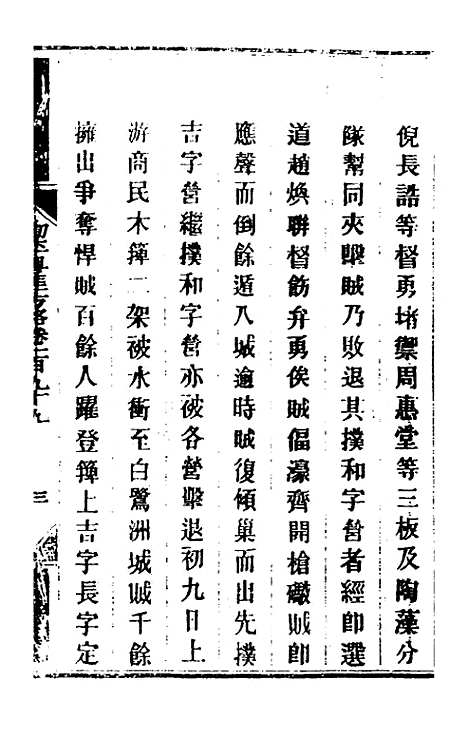 倪長誥等督勇堵禦周惠堂等三板及陶藻分
隊幫同夾擊賊乃敗退其撲和字營者經卽選
道趙煥聯督飭弁勇俟賊偪濠齊開槍礮賊卽
應聲而倒餘遁入城逾時賊復傾巢而出先撲
吉字營繼撲和字營亦被各營擊退初九日上
游商民木簰二架被水衝至白鷺洲城賊千餘
擁出爭奪悍賊百餘人躍登簰上吉字長字定
卷一百九十九
三